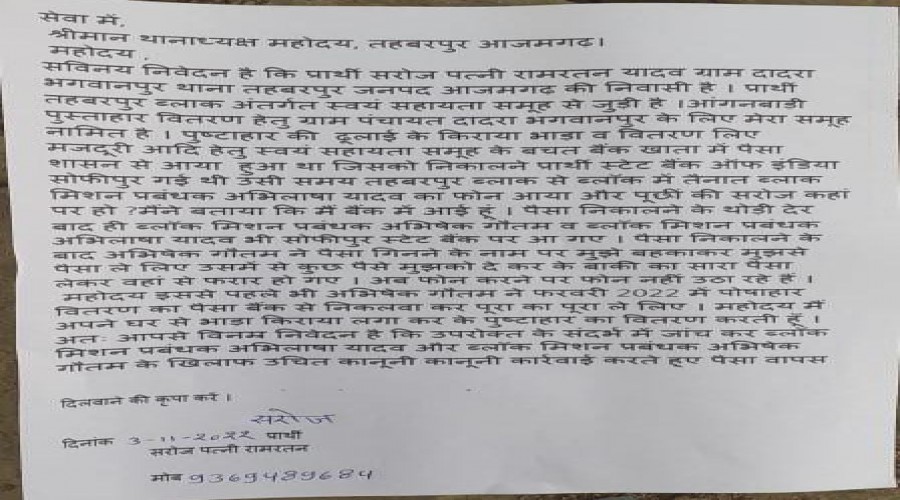 सेवा में,
श्रीमान थानाध्यक्ष महोदय, तहबरपुर आजमगढ़।
महोदय,
सविनय निवेदन है कि प्रार्थी सरोज पत्नी रामरतन यादव ग्राम दादरा
भगवानपुर थाना तहबरपुर जनपद आजमगढ़ की निवासी है । प्रार्थी
तहबरपुर ब्लाक अंतर्गत स्वयं सहायता समूह से जुड़ी है ।आंगनबाड़ी
पुस्ताहार वितरण हेतु ग्राम पंचायत दादरा भगवानपुर के लिए मेरा समूह
नामित है । पुष्टाहार की ढूलाई के किराया भाड़ा व वितरण लिए
मजदूरी आदि हेतु स्वयं सहायता समूह के बचत बैंक खाता में पैसा
शासन से आया हुआ था जिसको निकालने प्रार्थी स्टेट बैंक ऑफ इंडिया
सोफीपुर गई थी उसी समय तहबरपुर ब्लाक से ब्लॉक में तैनात ब्लाक
मिशन प्रबंधक अभिलाषा यादव का फोन आया और पूछीं की सरोज कहां
पर हो ?मैंने बताया कि मैं बैंक में आई हूं । पैसा निकालने के थोड़ी देर
बाद ही ब्लॉक मिशन प्रबंधक अभिषेक गौतम व ब्लॉक मिशन प्रबंधक
अभिलाषा यादव भी सोफीपुर स्टेट बैंक पर आ गए । पैसा निकालने के
बाद अभिषेक गौतम ने पैसा गिनने के नाम पर मुझे बहकाकर मुझसे
पैसा ले लिए उसमें से कुछ पैसे मुझको दे कर के बाकी का सारा पैसा
लेकर वहां से फरार हो गए । अब फोन करने पर फोन नहीं उठा रहे हैं ।
महोदय इससे पहले भी अभिषेक गौतम ने फरवरी 2022 में पोषाहार
वितरण का पैसा बैंक से निकलवा कर पूरा का पूरा ले लिए । महोदय मैं
अपने घर से भाड़ा किराया लगा कर के पुष्टाहार का वितरण करती हूँ ।
अतः आपसे विनम्र निवेदन है कि उपरोक्त के संदर्भ में जांच कर ब्लॉक
मिशन प्रबंधक अभिलाषा यादव और ब्लॉक मिशन प्रबंधक अभिषेक
गौतम के खिलाफ उचित कानूनी कानूनी कार्रवाई करते हुए पैसा वापस
दिलवाने की कृपा करें ।
सरोज
दिनांक 3-11-2022 प्रार्थी
सरोज पत्नी रामरतन
मोब 9369489684